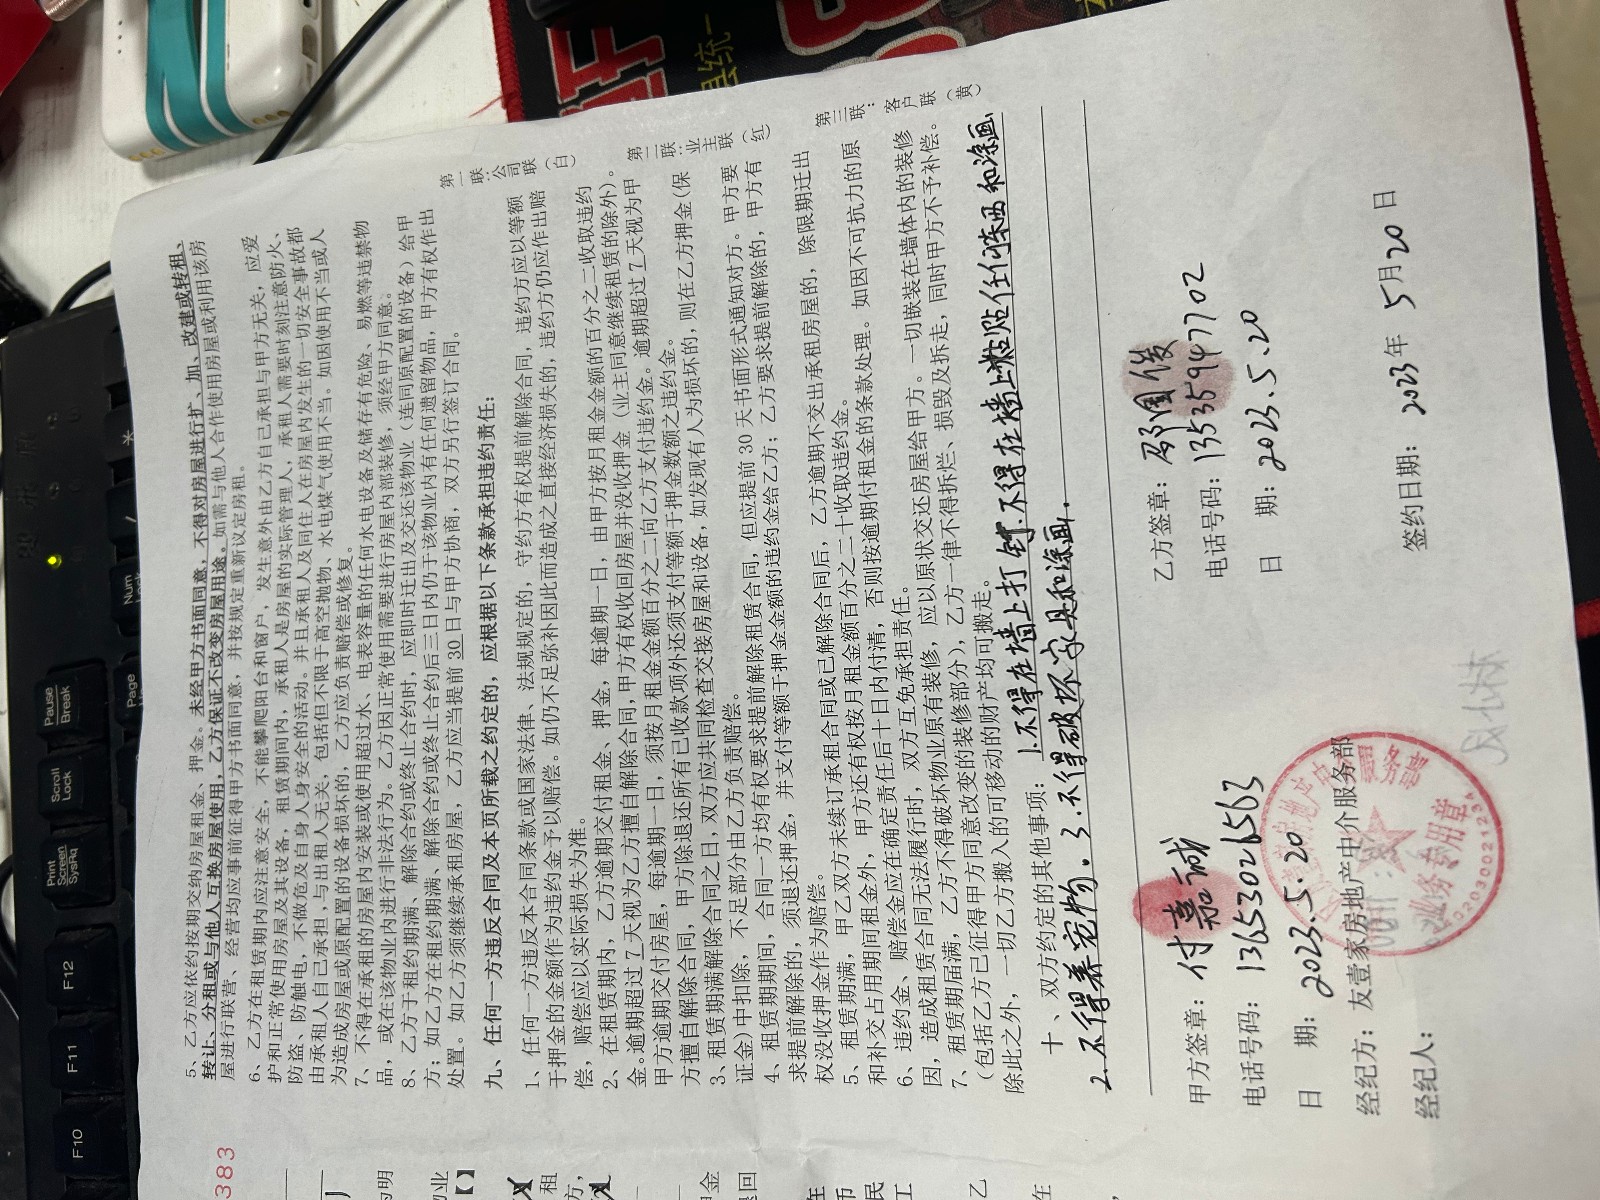 5、乙方应依约按期交纳房屋租金、押金。未经甲方书面同意，不得对房屋进行扩、加、改建或转租、
转让、分租或与他人互换房屋使用，乙方保证不改变房屋用途。如需与他人合作使用房屋或利用该房
屋进行联营、经营均应事前征得甲方书面同意，并按规定重新议定房租。
6、乙方在租赁期内应注意安全，不能攀爬阳台和窗户，发生意外由乙方自己承担与甲方无关，应爱
护和正常使用房屋及其设备，租赁期间内，承租人是房屋的实际管理人，承租人需要时刻注意防火、
防盗、防触电，不做危及自身人身安全的活动。并且承租人及同住人在房屋内发生的一切安全事故都
由承租人自己承担，与出租人无关，包括但不限于高空抛物、水电煤气使用不当。如因使用不当或人
为造成房屋或原配置的设备损坏的，乙方应负责赔偿或修复。
7、不得在承租的房屋内安装或使用超过水、电表容量的任何水电设备及储存有危险、易燃等违禁物
品，或在该物业内进行非法行为。乙方因正常使用需要进行房屋内部装修，须经甲方同意。
8、乙方于租约期满、解除合约或终止合约时，应即时迁出及交还该物业（连同原配置的设备）给甲
方；如乙方在租约期满、解除合约或终止合约后三日内仍于该物业内有任何遗留物品，甲方有权作出
处置。如乙方须继续承租房屋，乙方应当提前 30 日与甲方协商，双方另行签订合同。
九、任何一方违反合同及本页所载之约定的，应根据以下条款承担违约责任：
1、任何一方违反本合同条款或国家法律、法规规定的，守约方有权提前解除合同，违约方应以等额
于押金的金额作为违约金予以赔偿。如仍不足弥补因此而造成之直接经济损失的，违约方仍应作出赔
偿，赔偿应以实际损失为准。
2、在租赁期内，乙方逾期交付租金、押金，每逾期一日，由甲方按月租金金额的百分之二收取违约
金。逾期超过 7 天视为乙方擅自解除合同，甲方有权收回房屋并没收押金（业主同意继续租赁的除外）。
甲方逾期交付房屋，每逾期一日，须按月租金金额百分之二向乙方支付违约金。逾期超过 7 天视为甲
方擅自解除合同，甲方除退还所有已收款项外还须支付等额于押金数额之违约金。
3、租赁期满解除合同之日，双方应共同检查交接房屋和设备，如发现有人为损坏的，则在乙方押金（保
证金）中扣除，不足部分由乙方负责赔偿。
4、租赁期期间，合同一方均有权要求提前解除租赁合同，但应提前 30 天书面形式通知对方。甲方要
求提前解除的，须退还押金，并支付等额于押金金额的违约金给乙方；乙方要求提前解除的，甲方有
权没收押金作为赔偿。
5、租赁期满，甲乙双方未续订承租合同或已解除合同后，乙方逾期不交出承租房屋的，除限期迁出
和补交占用期间租金外，甲方还有权按月租金额百分之二十收取违约金。
6、违约金、赔偿金应在确定责任后十日内付清，否则按逾期付租金的条款处理。如因不可抗力的原
因，造成租赁合同无法履行时，双方互免承担责任。
7、租赁期届满，乙方不得破坏物业原有装修，应以原状交还房屋给甲方。一切嵌装在墙体内的装修
（包括乙方已征得甲方同意改变的装修部分），乙方一律不得拆烂、损毁及拆走，同时甲方不予补偿。
除此之外，一切乙方搬入的可移动的财产均可搬走。
十、双方约定的其他事项：1.不得在墙上打钉.不得在墙上粘贴任何东西和涂画
2.不得养宠物。3.不得破坏家具和涂画.
甲方签章：付嘉诚
电话号码：13653026563
日期：2023.5.20
经纪方：友壹家房地产中介服务部
经纪人：
乙方签章：
电话号码：13535947702
日期：2023.5.20
签约日期：2023年 5月20日
第一联：公司联（白）
第二联：业主联（红）
第三联：客户联（黄）
业务专用章
383
Print
Screen
SysRq
Scroll
Lock
Pause
Break
F10
F11
F12
Num
Lock
Page
/
*